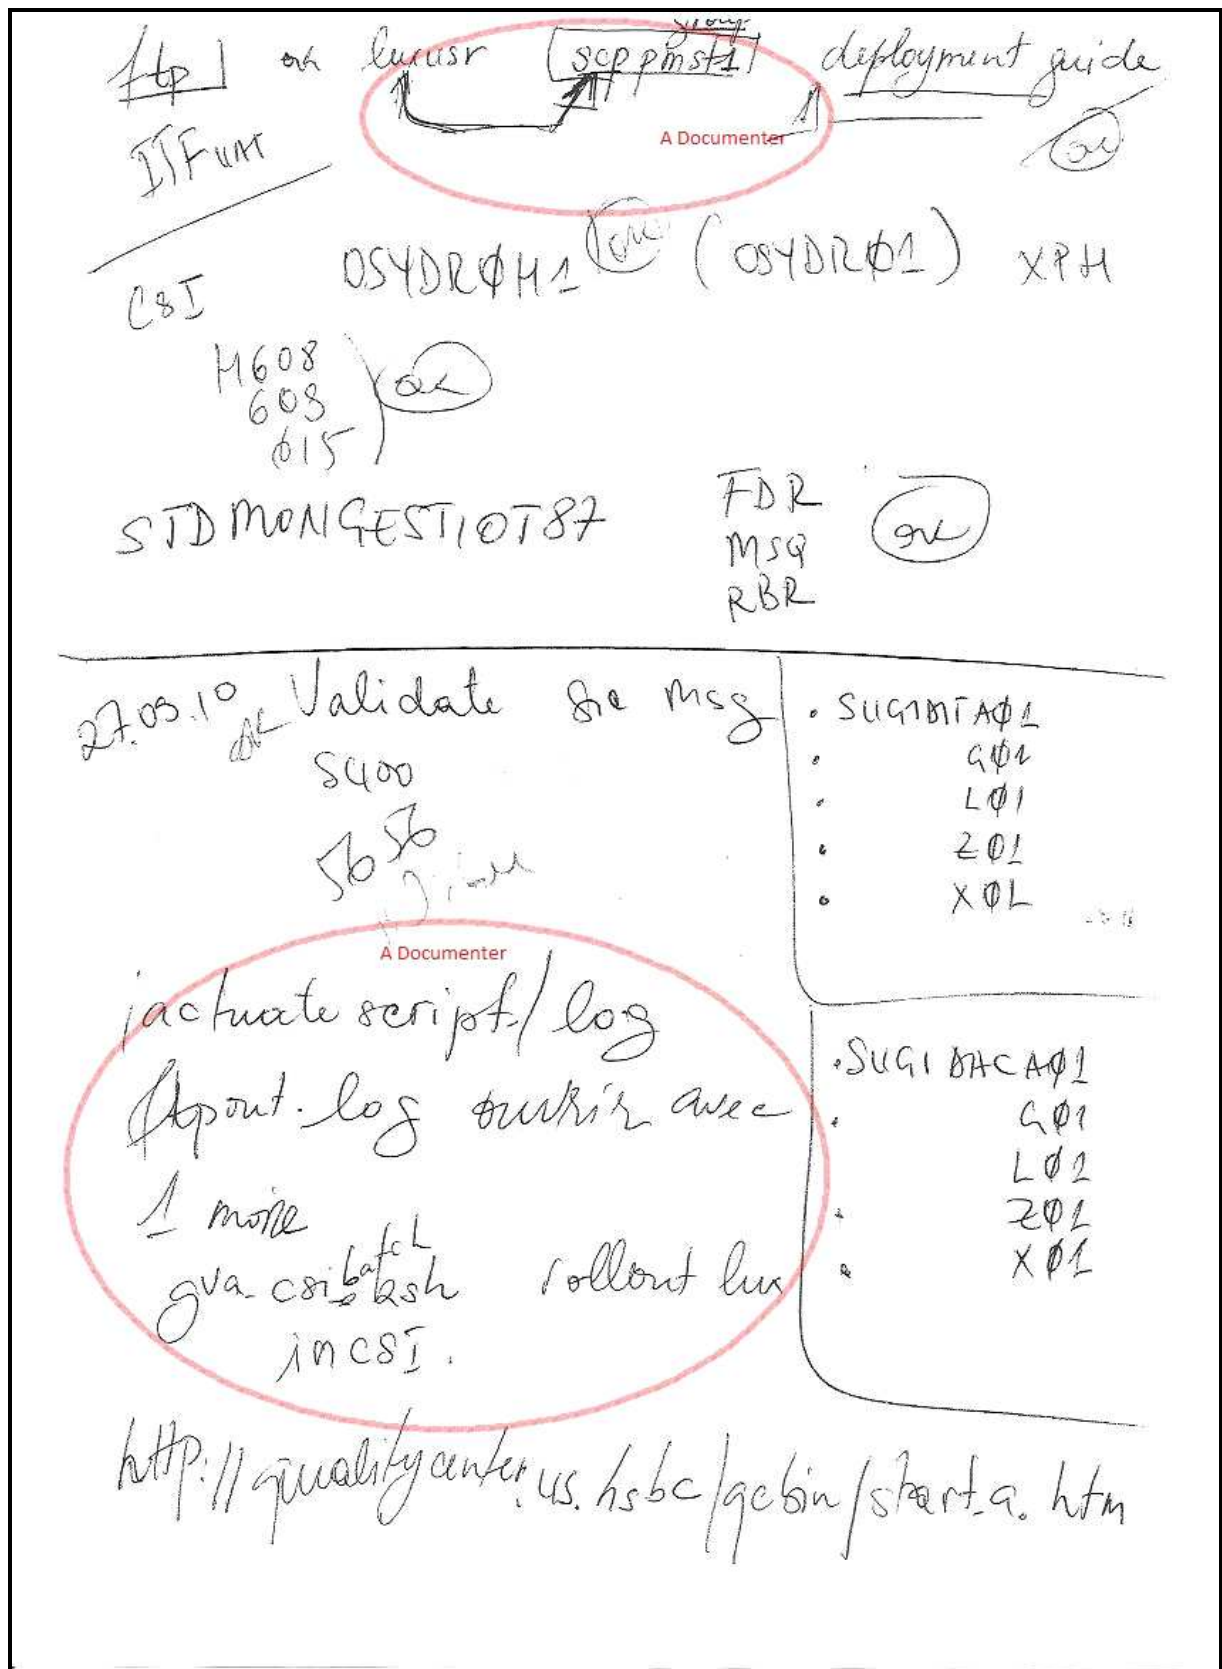 group
ftp ok luxusr scppmst1 deployment guide
A Documenter
ITFUAT ok
OSYDRØH1 ok (OSYDRØ1) XPH
CSI
H608
608 ok
Ø15
STDMONGESTIOT87
FDR
MSQ ok
RBR
27.09.10 ok Validate Sre msg
S400
56 56
• SUGIDITAØ1
• GØ1
• LØ1
• ZØ1
• XØ1
A Documenter
jactuate script/log
ftpout.log ouvrir avec
1 more
gva-csibatch.ksh rollout lux
in CSI.
• SUGIDACAØ1
• GØ1
LØ1
• ZØ1
• XØ1
http://qualitycenter.us.hsbc/qcbin/start_a.htm